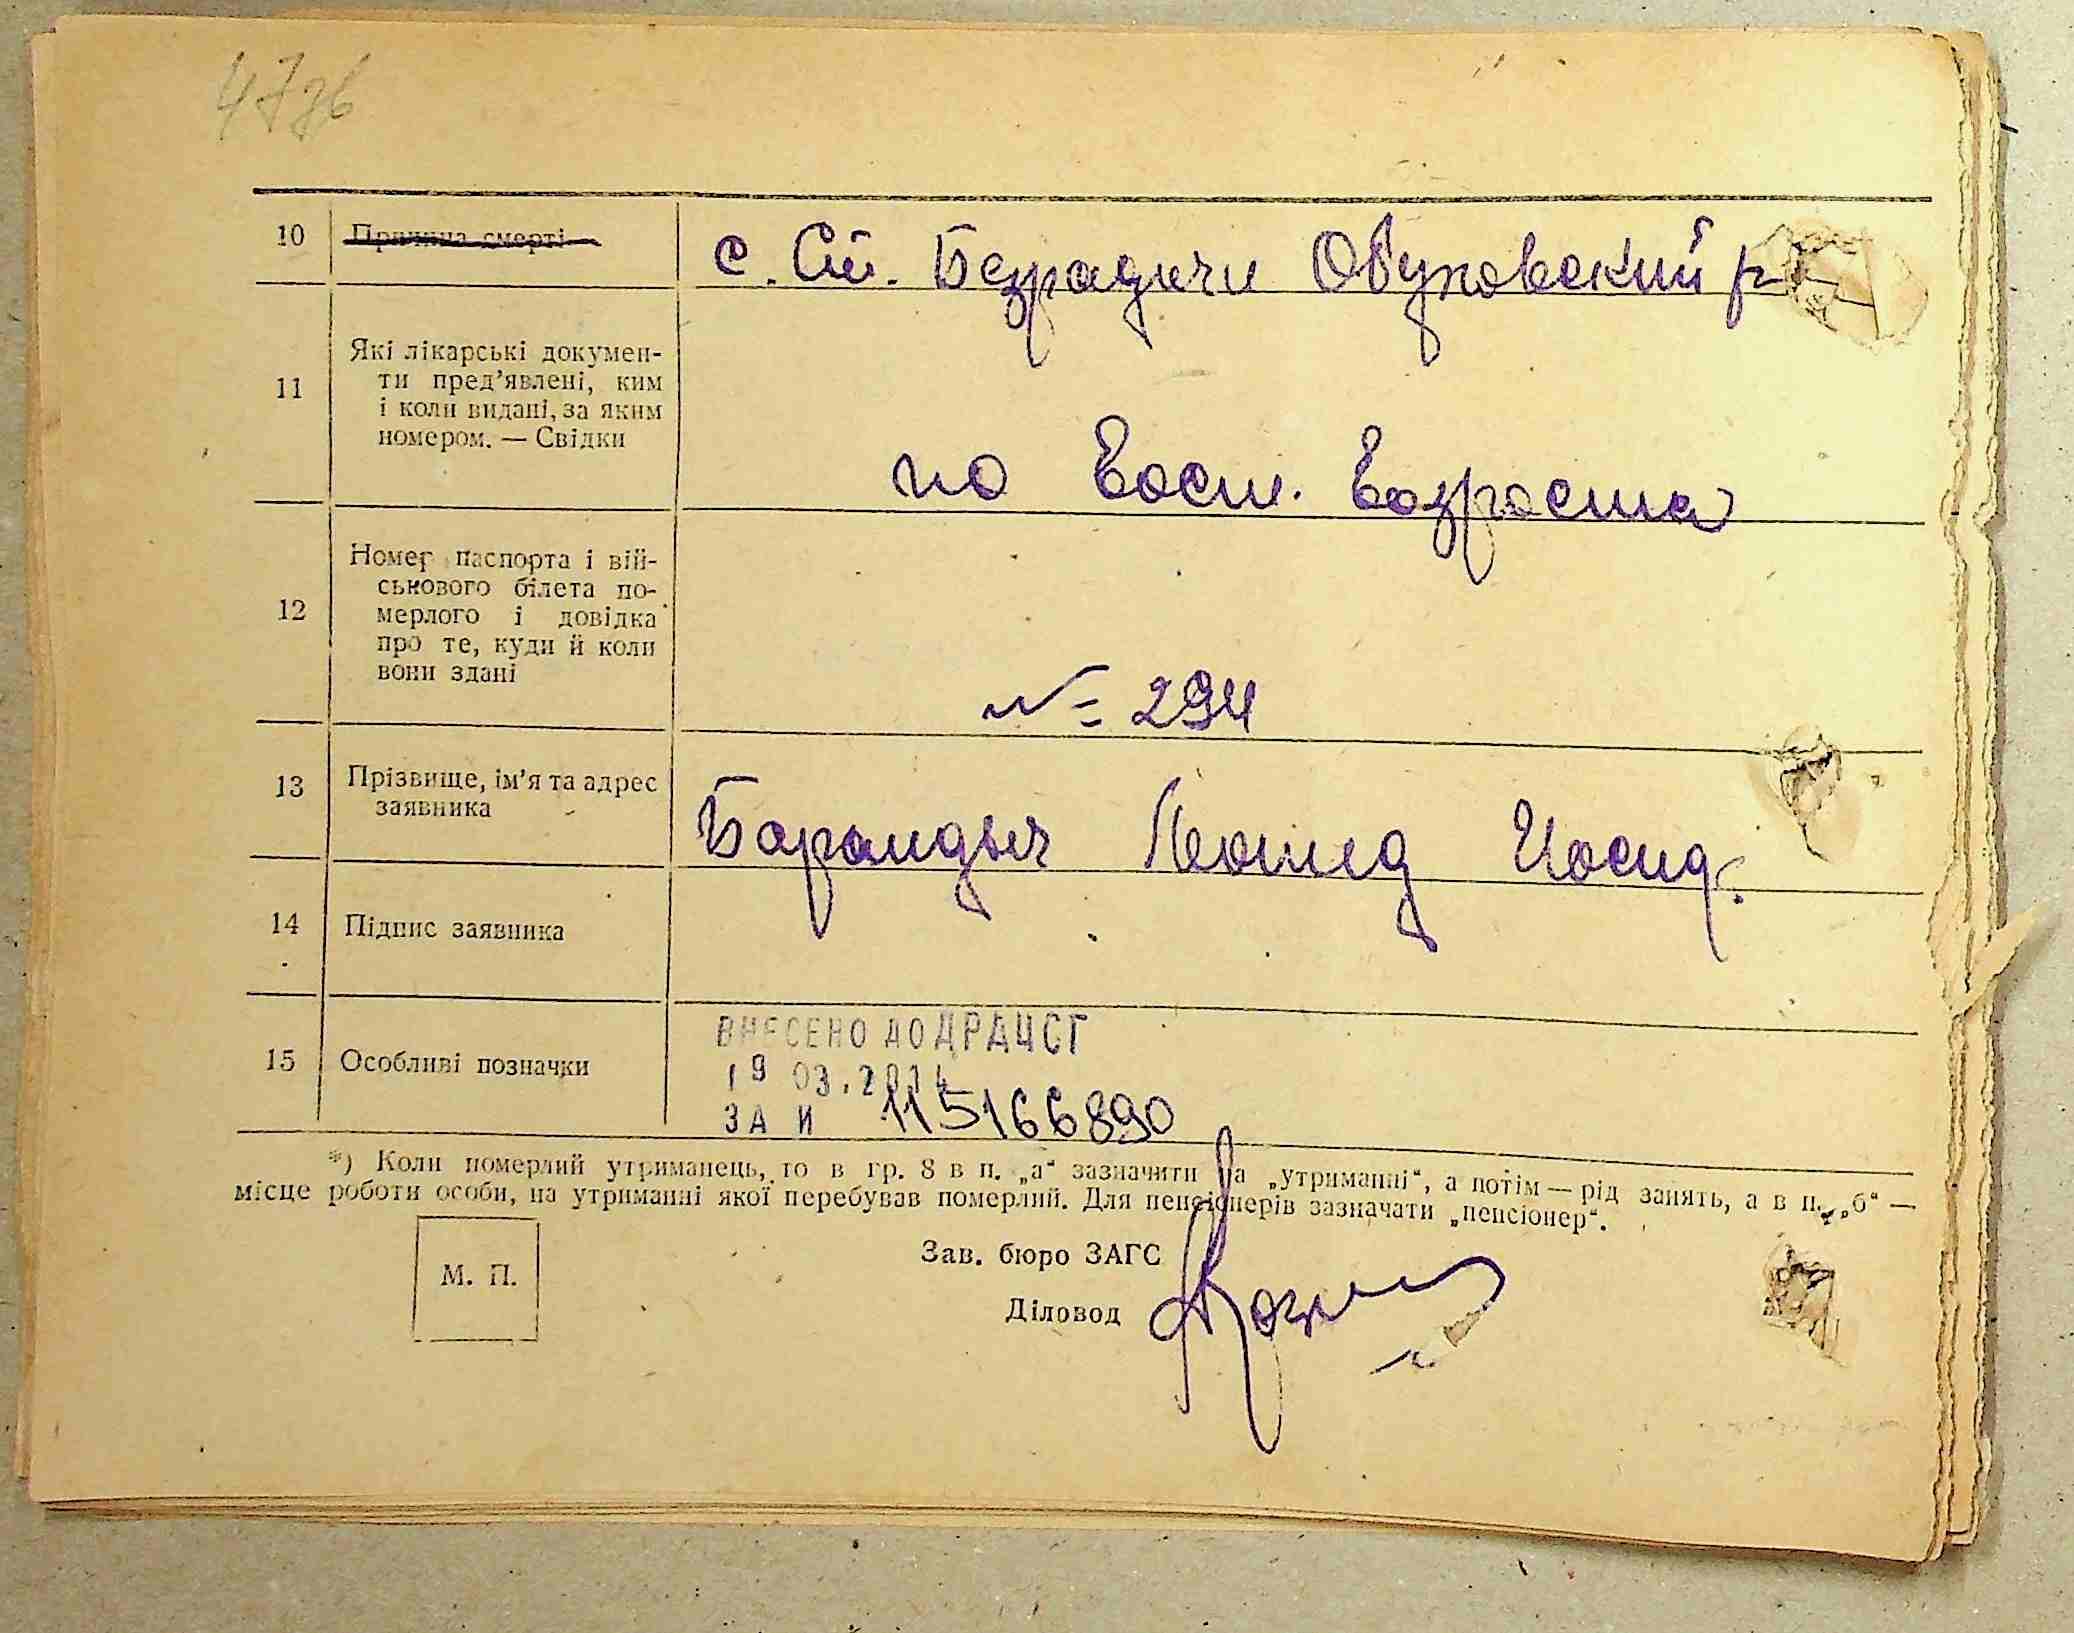 47зв
10 Причина смерті с. Ст. Безрадичи Обуховский р
11 Які лікарські докумен-
ти пред’явлені, ким
і коли видані, за яким
номером. — Свідки
по вост. возраста
12 Номер паспорта і вій-
ськового білета по-
мерлого і довідка
про те, куди й коли
вони здані
№ 294
13 Прізвище, ім’я та адрес
заявника
Барандыч Леонид Иосиф.
14 Підпис заявника
15 Особливі позначки
ВНЕСЕНО ДО ДРАЦСГ
19 03.2014
ЗА И 115166890
*) Коли померлий утриманець, то в гр. 8 в п. „а“ зазначити на „утриманні“, а потім — рід занять, а в п. „б“ —
місце роботи особи, на утриманні якої перебував померлий. Для пенсіонерів зазначати „пенсіонер“.
М. П.
Зав. бюро ЗАГС
Діловод